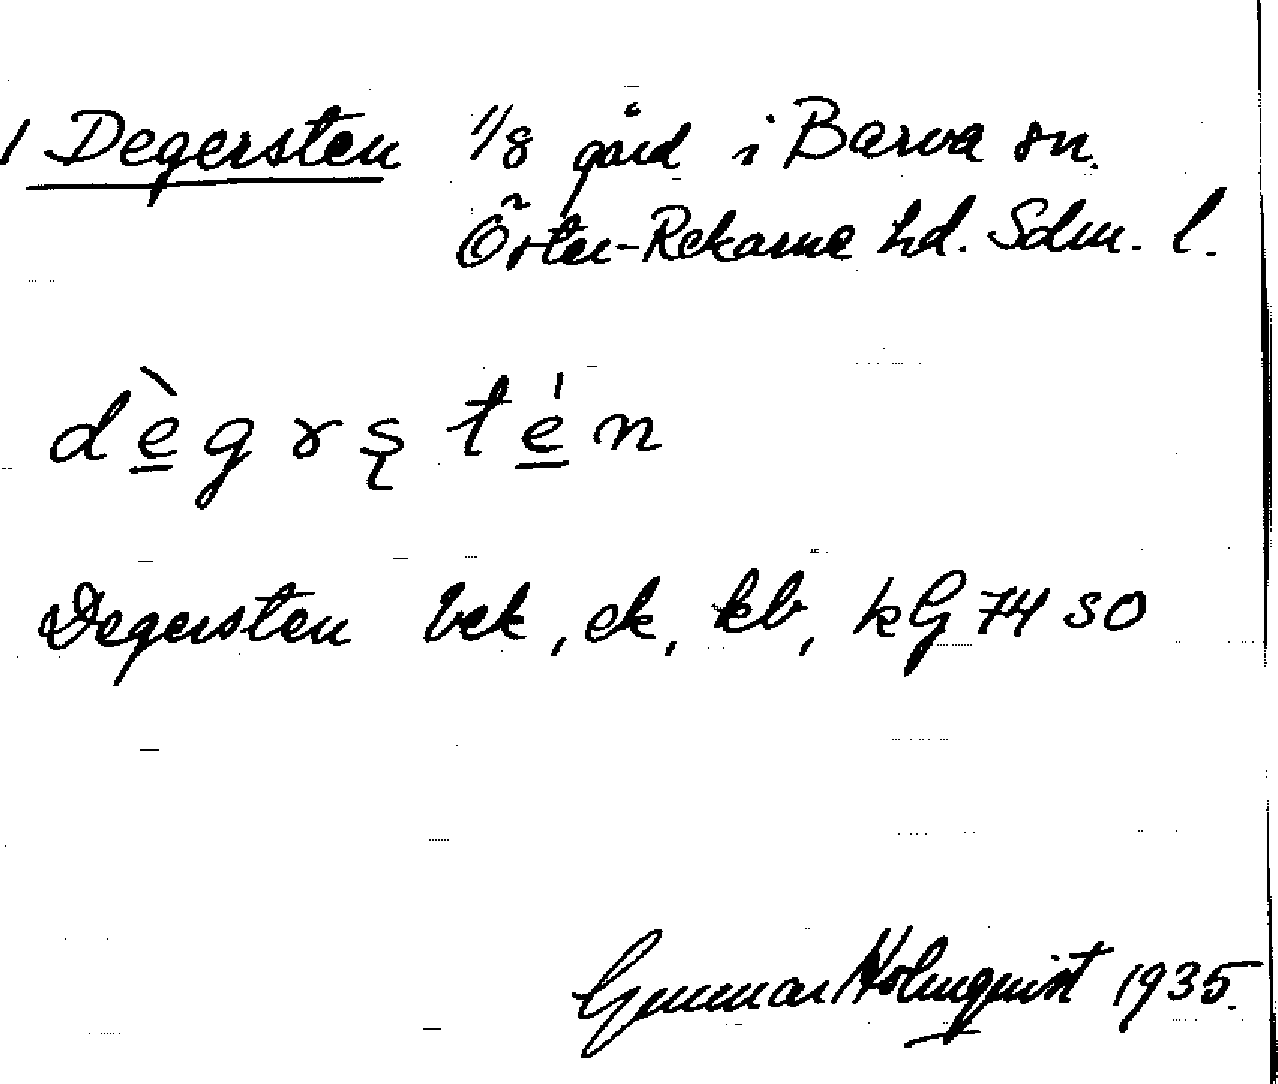 1 Degersten 1/8 gård i Barva sn.
Öster-Rekarne hd. Sdm. l.
dè̱grs̨té̱n
Degersten bek, ek, kb, kG 74 SO
Gunnar Holmquist 1935.